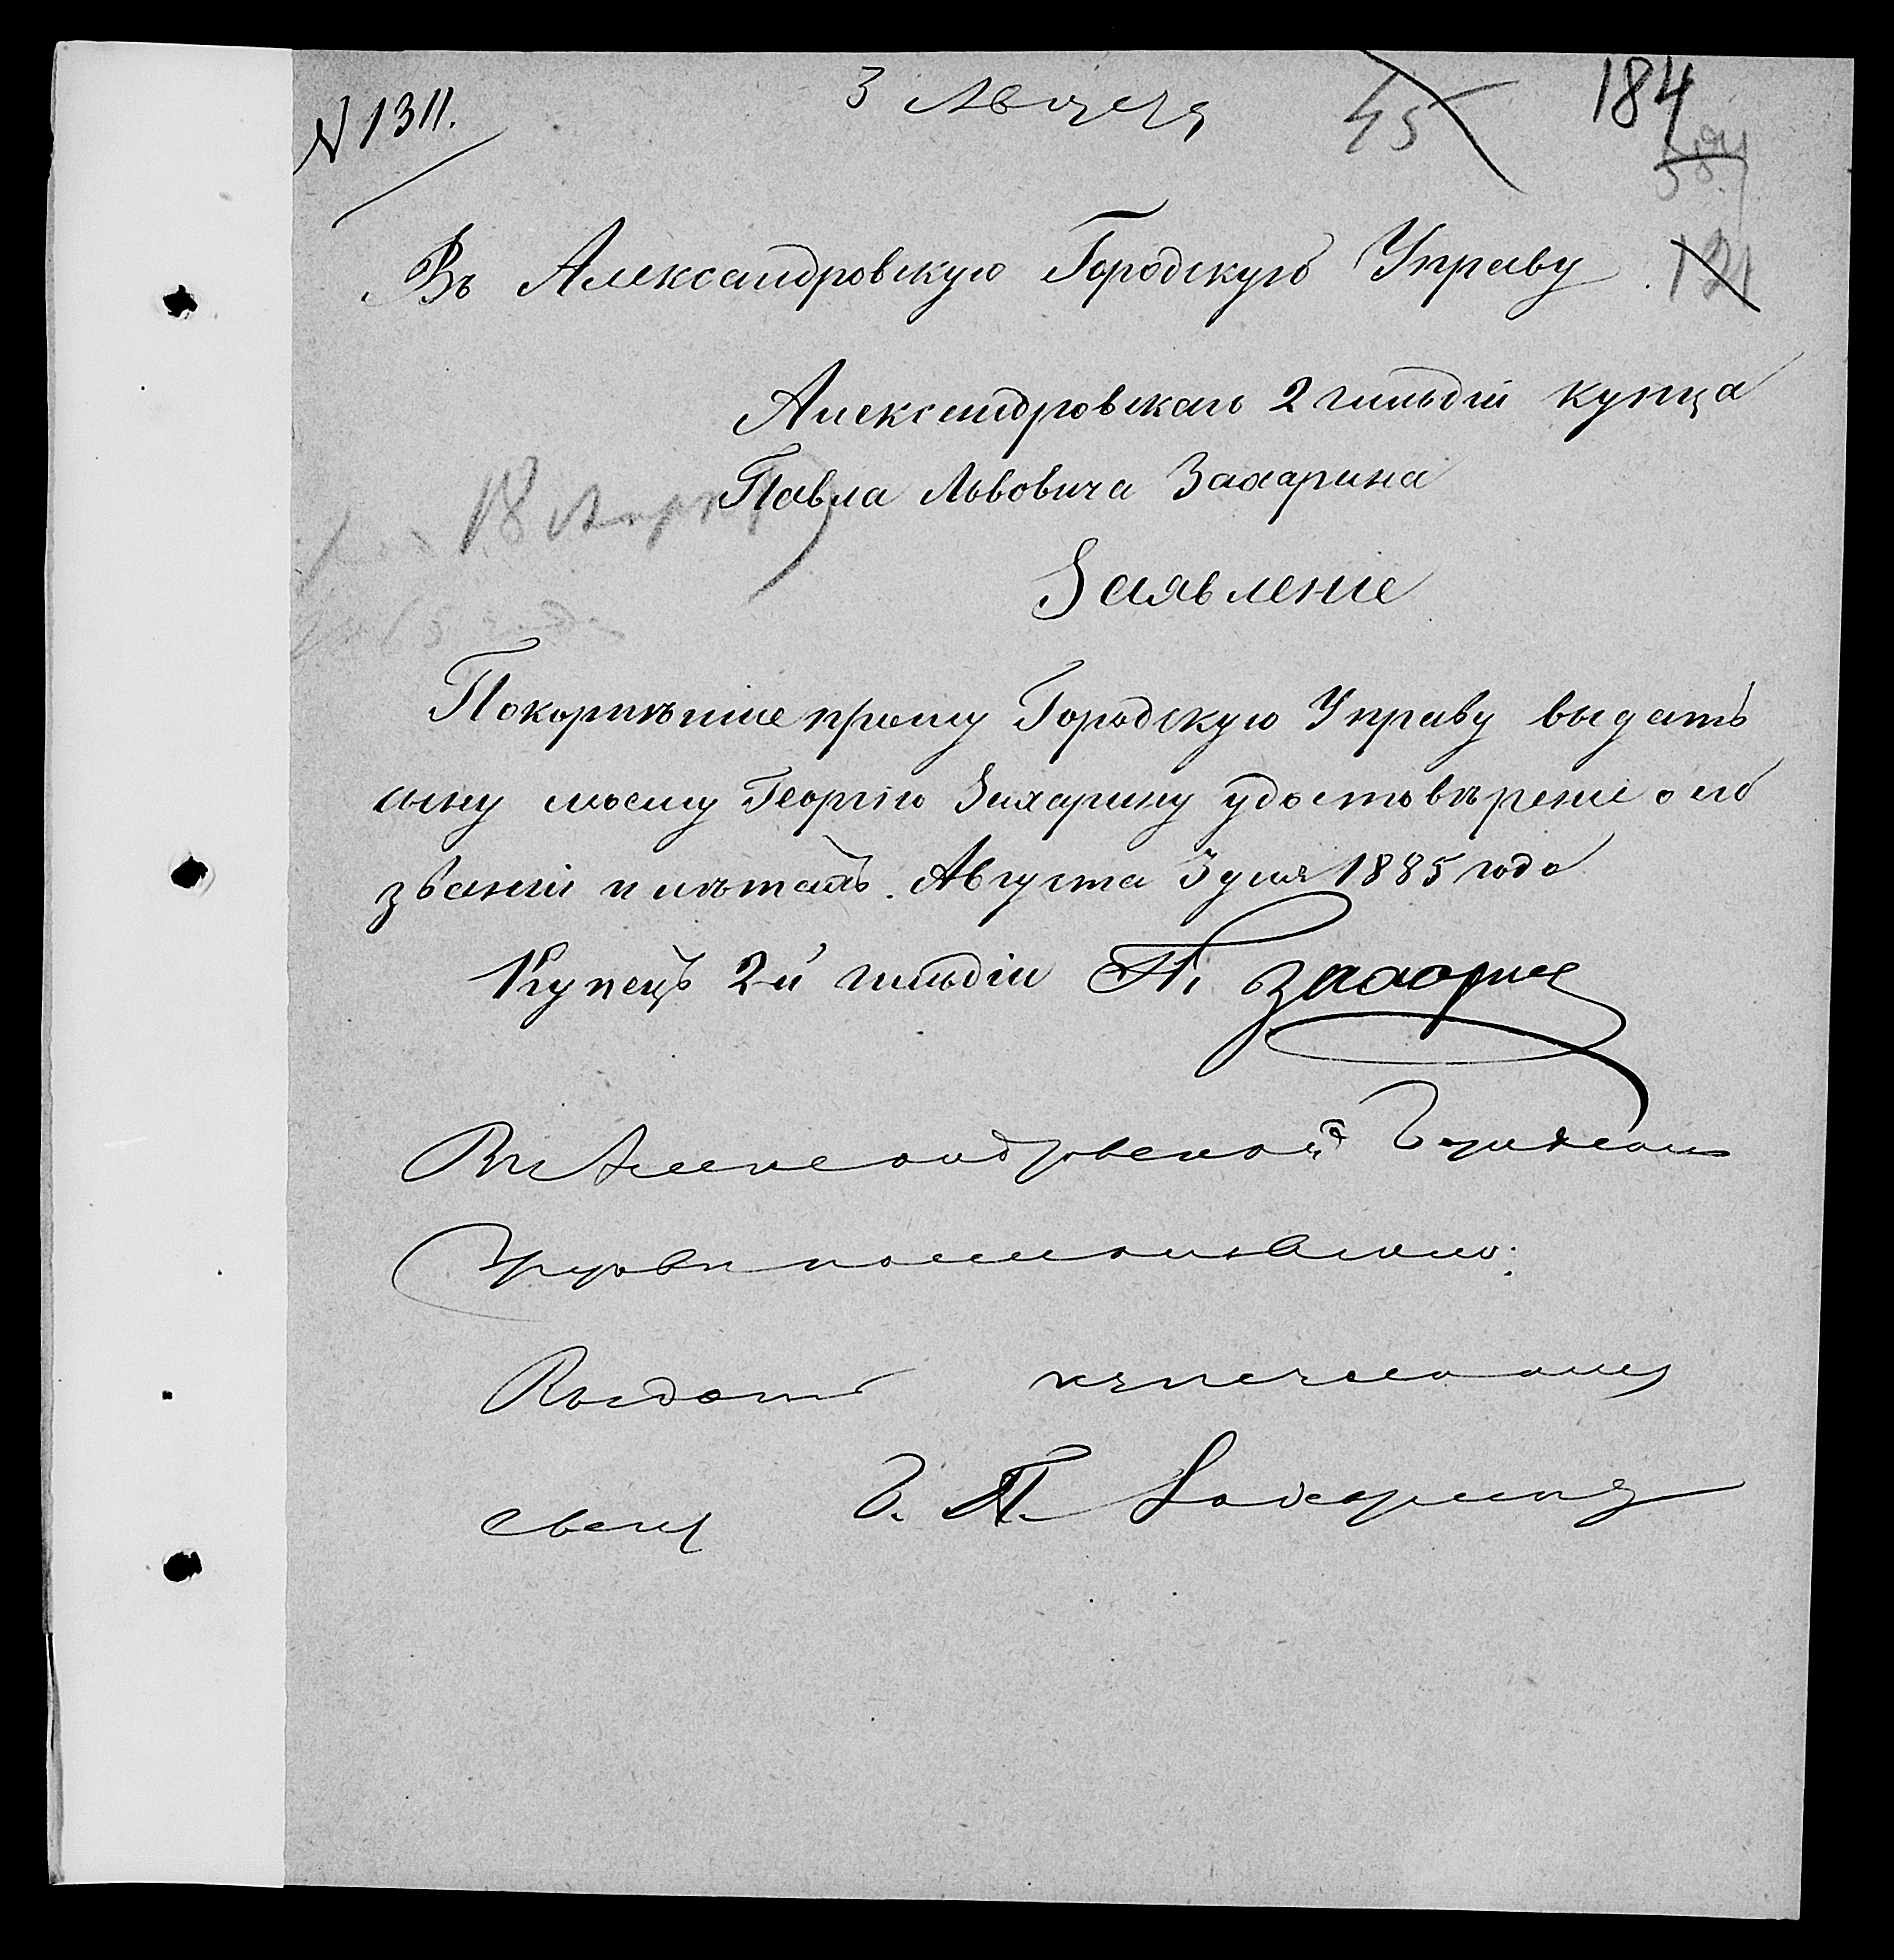 № 1311.
3 Августа
45
184
121
Въ Александровскую Городскую Управу
Александровскаго 2 гильдіи купца
Павла Львовича Захарина
18
Заявленіе
Покорнѣише прошу Городскую Управу выдать
сыну моему Георгію Захарину удостовѣреніе о его
званіи и лѣтахъ. Августа 3 дня 1885 года
Купецъ 2-й гильдіи П. Захаринъ
Въ Александровской Городской
Управѣ постановлено:
Выдать купеческому
сыну Г. П. Захарину